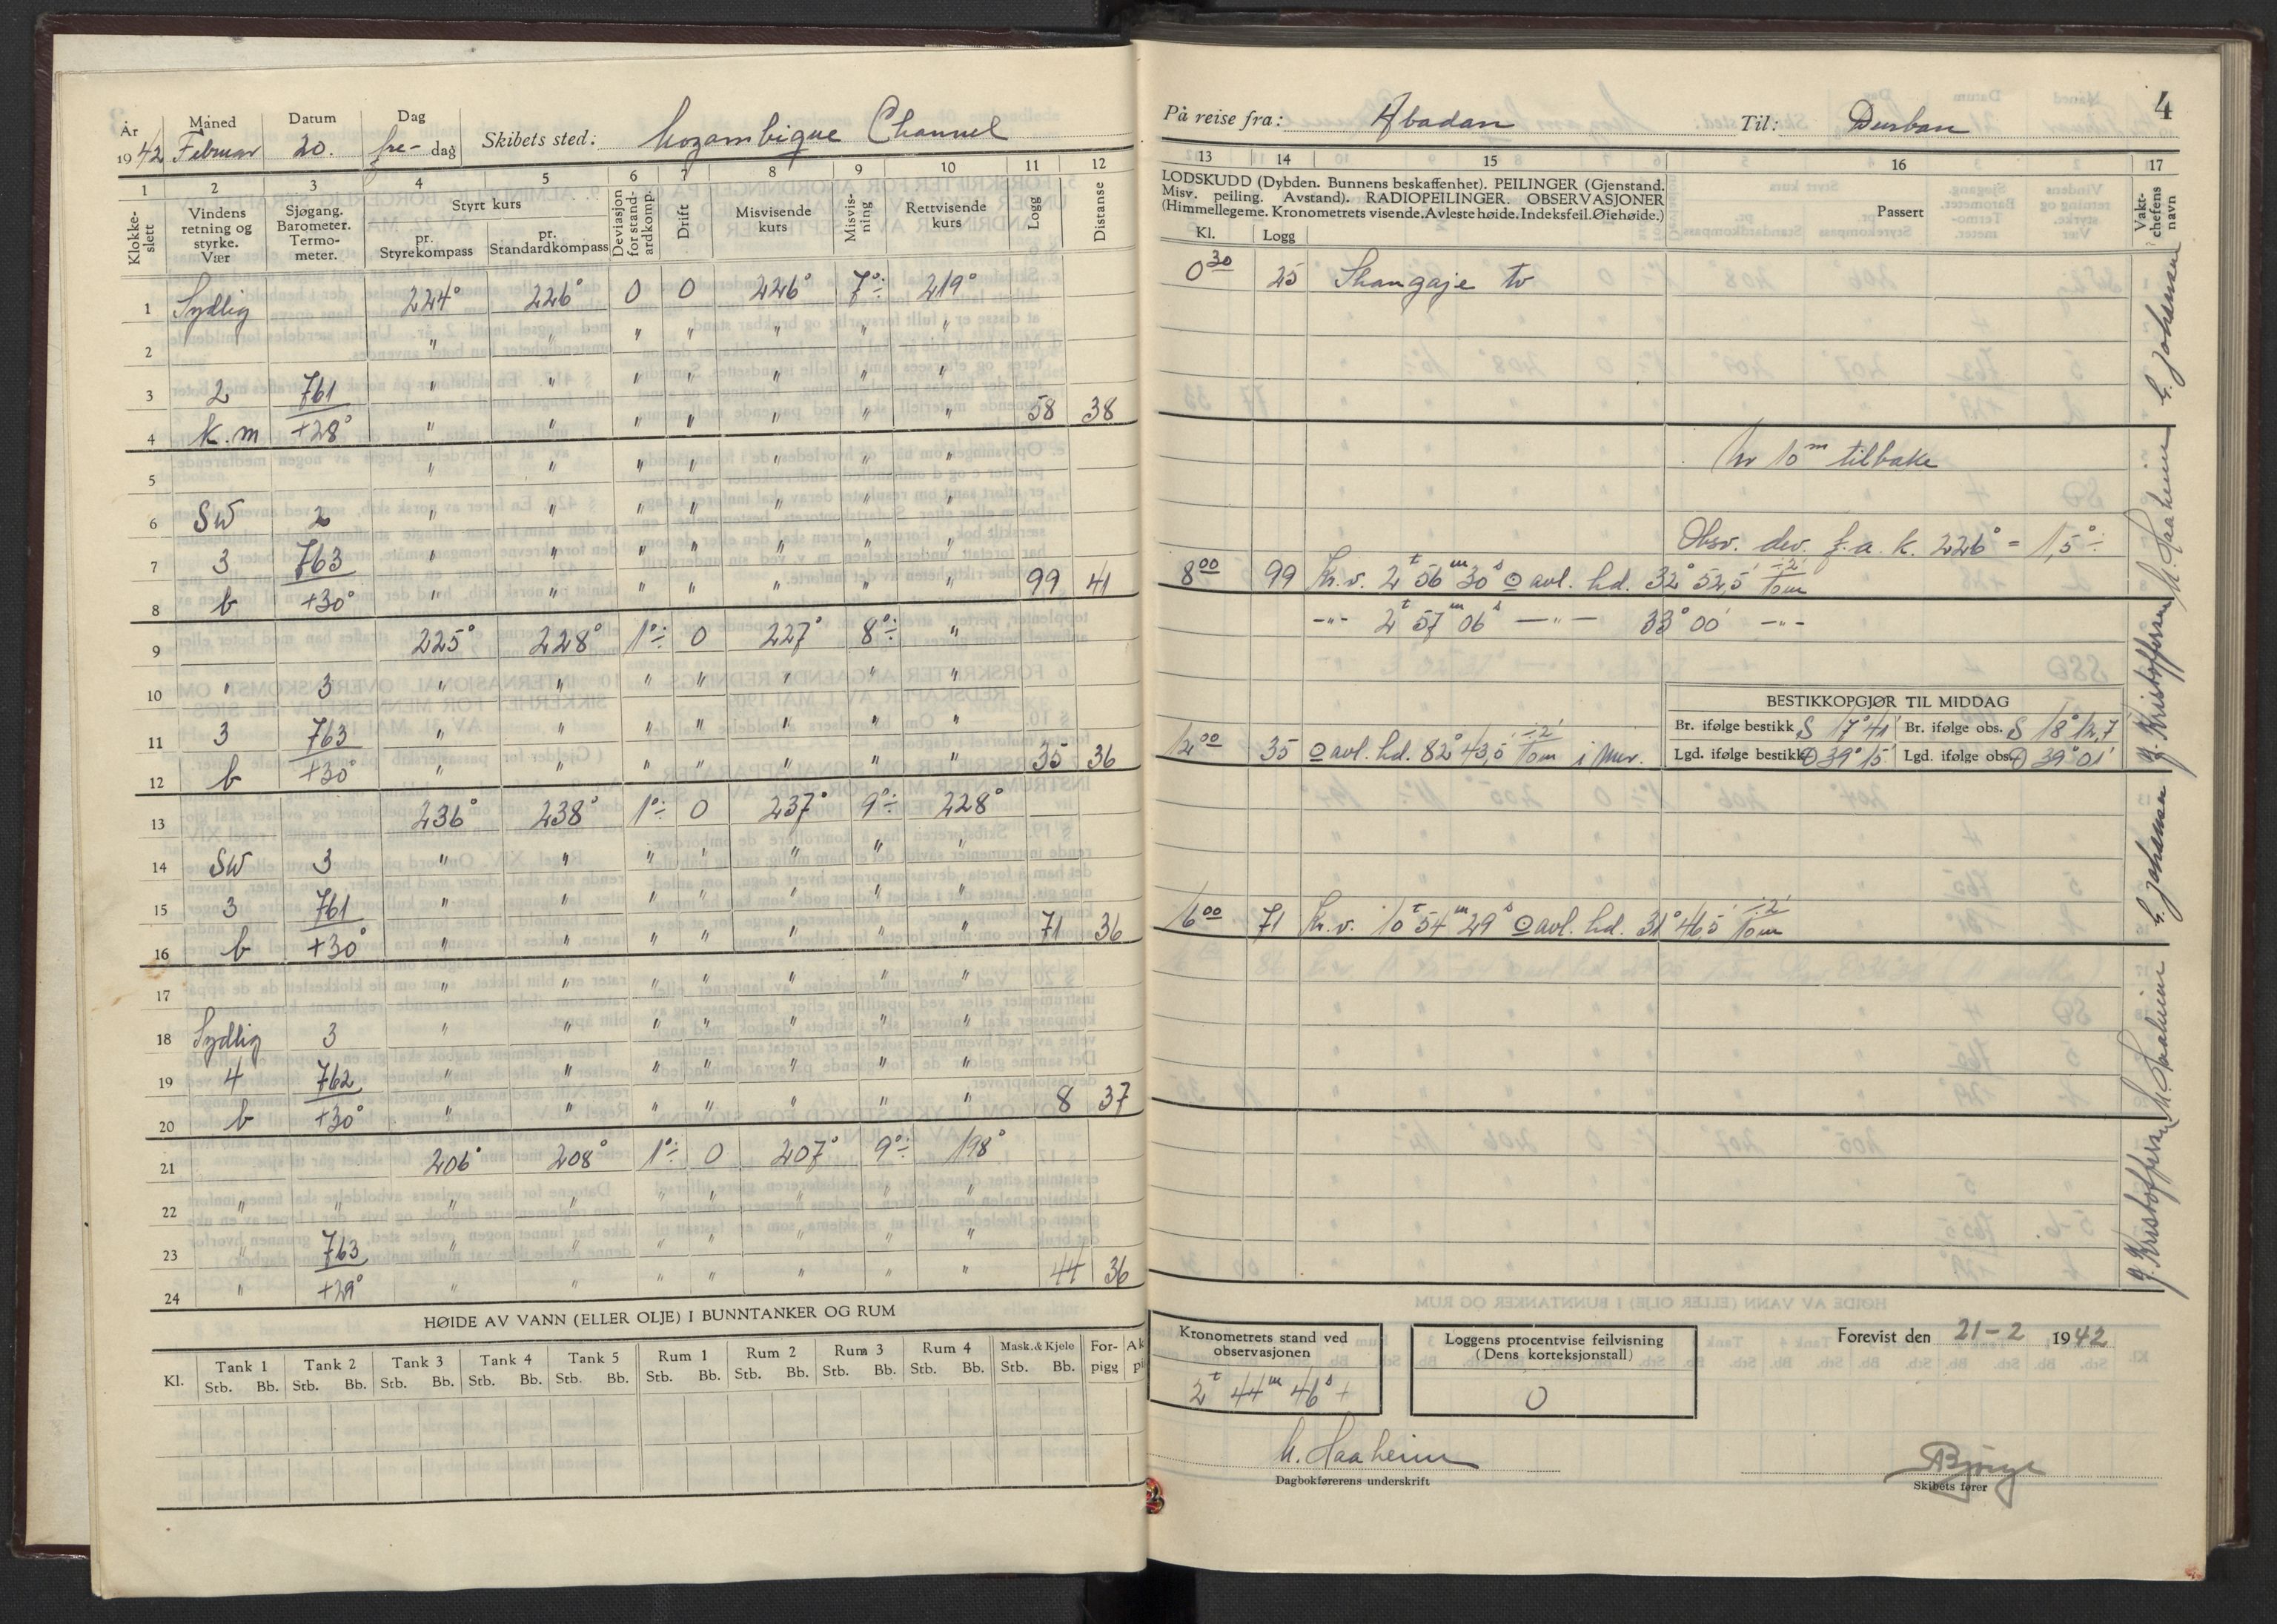 År 1942 Måned Februar Datum 20. Dag fre-dag Skibets sted: Mozambique Channel
1 2 3 4 5 6 7 8 9 10 11 12
Klokkeslett Vindens retning og styrke. Vær Sjøgang. Barometer. Termo-meter. Styrt kurs pr. Styrekompass pr. Standardkompass Deviasjon for stand-ardkomp. Drift Misvisende kurs Misvis-ning Rettvisende kurs Logg Distanse
1 Sydlig 224° 226° 0 0 226° 7°÷ 219°
2 " " " " " " "
3 2 761 " " " " " " "
4 k.m +28° " " " " " " " 58 38
5 " " " " " " "
6 SW 2 " " " " " " "
7 3 763 " " " " " " "
8 b +30° " " " " " " " 99 41
9 225° 228° 1°÷ 0 227° 8°÷ "
10 " 3 " " " " " " "
11 3 763 " " " " " " "
12 b +30° " " " " " " " 35 36
13 236° 238° 1°÷ 0 237° 9°÷ 228°
14 SW 3 " " " " " " "
15 3 761 " " " " " " "
16 b +30° " " " " " " " 71 36
17 " " " " " " "
18 Sydlig 3 " " " " " " "
19 4 762 " " " " " " "
20 b +30° " " " " " " " 8 37
21 206° 208° 1°÷ 0 207° 9°÷ 198°
22 " " " " " " " "
23 " 763 " " " " " " "
24 " +29° " " " " " " " 44 36
HØIDE AV VANN (ELLER OLJE) I BUNNTANKER OG RUM
Kl. Tank 1 Tank 2 Tank 3 Tank 4 Tank 5 Rum 1 Rum 2 Rum 3 Rum 4 Mask.& Kjele For-pigg Ak
Stb. Bb. Stb. Bb. Stb. Bb. Stb. Bb. Stb. Bb. Stb. Bb. Stb. Bb. Stb. Bb. Stb. Bb. Stb. Bb. pi
På reise fra: Abadan Til: Durban 4
13 14 15 16 17
LODSKUDD (Dybden. Bunnens beskaffenhet). PEILINGER (Gjenstand.
Misv. peiling. Avstand). RADIOPEILINGER. OBSERVASJONER
(Himmellegeme. Kronometrets visende. Avleste høide. Indeksfeil. Øiehøide.)
Kl. Logg Passert Vakt-chefens navn
0 30 25 Shangaje tv
E. Johansen
Ur 10m tilbake
Obsv. dev. f.a. k. 226° = 1,5°÷
8 00 99 Kr.v. 2t 56m 30s ☉ avl. hd. 32° 52,5' ÷2' 10m
M. Haaheim
-"- 2t 57m 06s -"- 33° 00' -"-
BESTIKKOPGJØR TIL MIDDAG
Br. ifølge bestikk S 17° 41' Br. ifølge obs. S 18° 12,7'
12 00 35 ☉ avl. hd. 82° 43,5' ÷2' 10m i Mer. Lgd. ifølge bestikk Ø 39° 15' Lgd. ifølge obs. Ø 39° 01'
J. Kristoffersen
16 00 71 Kr.v. 10t 54m 29s ☉ avl. hd. 31° 46,5' ÷2' 10m
E. Johansen
M. Haaheim
J. Kristoffersen
Kronometrets stand ved observasjonen
2t 44m 46s +
Loggens procentvise feilvisning
(Dens korreksjonstall)
0
Forevist den 21-2 1942
M. Haaheim
Dagbokførerens underskrift
Skibets fører